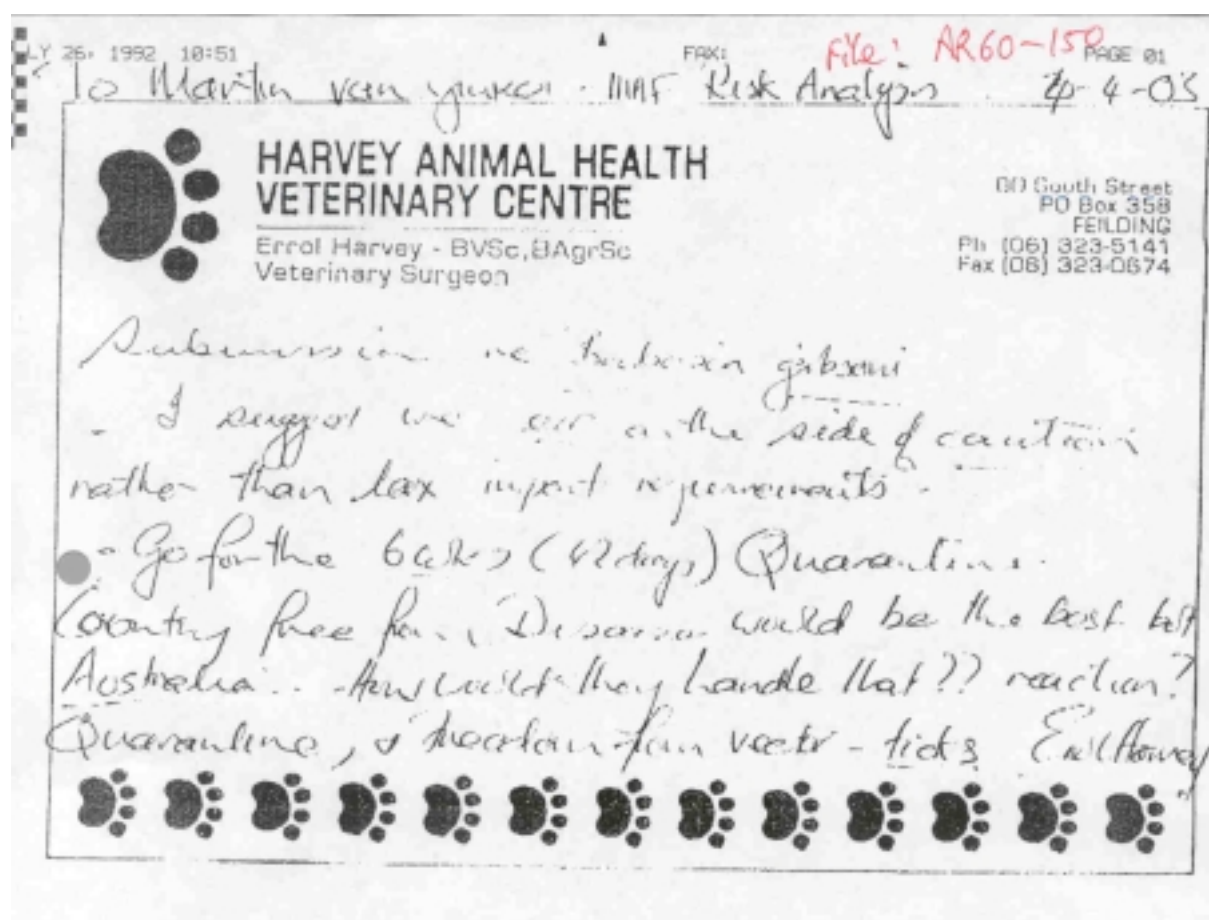 LY 26, 1992 10:51 FAX: File: AR60-150 PAGE 01
To Martin van - MAF Risk Analysis 4-03
HARVEY ANIMAL HEALTH
VETERINARY CENTRE
Errol Harvey - BVSc, BAgrSc
Veterinary Surgeon
South Street
PO Box 358
FEILDING
Ph (06) 323-5141
Fax (06) 323-0674
Submission re gibsoni
- I suggest we err on the side of caution
rather than lax import requirements -
- Go for the 6 wks (42 days) Quarantine.
Country free from Disease would be the best bet
Australia.. How would they handle that?? reaction?
Quarantine, & treatment for vector - ticks Errol Harvey